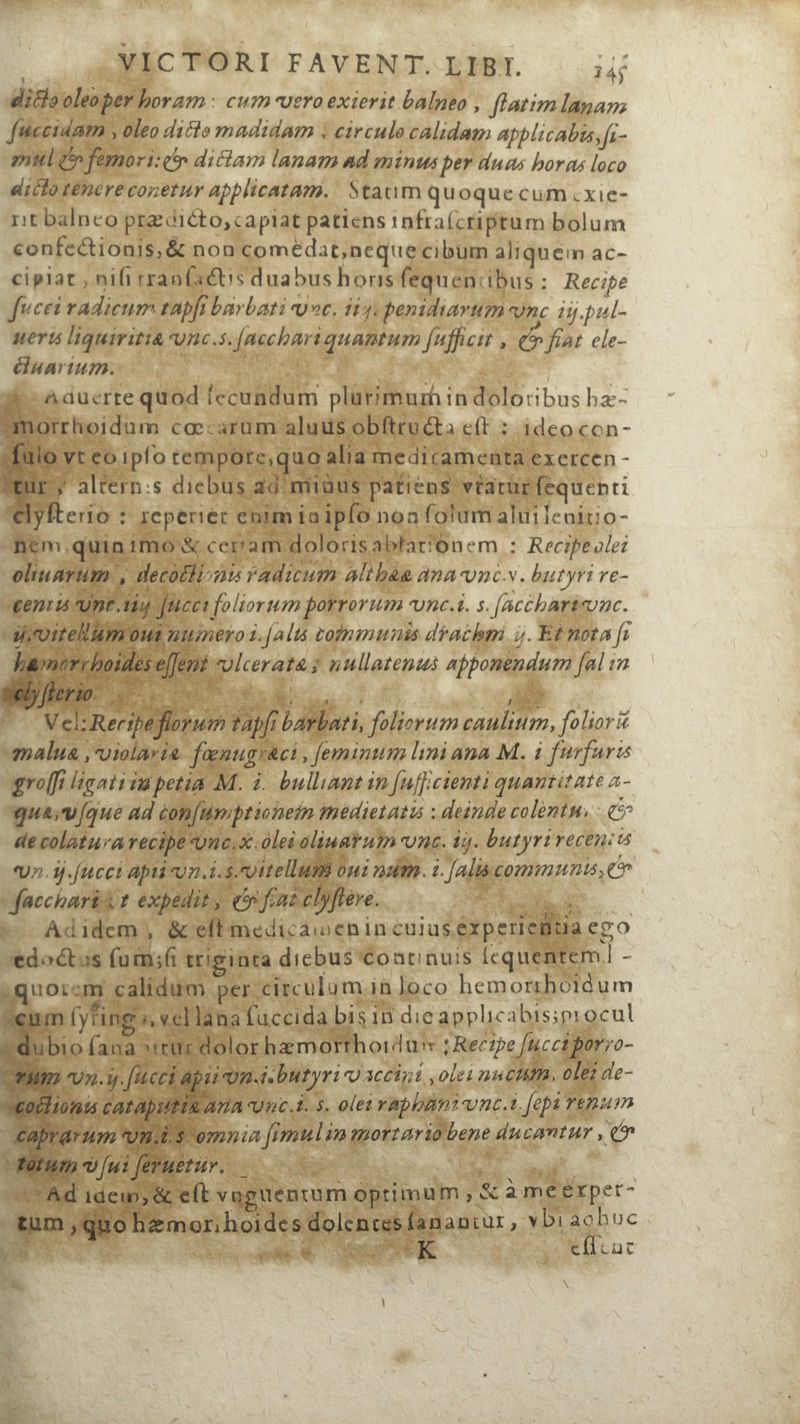 VICTORI FAVENT. LIBI. 145
dicto oleo per horam : cum vero exierit balneo , ſtatim lanam
ſuccidam , oleo dicto madidam , circulo calidam applicabis, ſi-
mul & femori: & dictam lanam ad minus per duas horas loco
dicto tenere conetur applicatam. Statim quoque cum exie-
rit balneo prædicto, capiat patiens infraſcriptum bolum
confectionis, & non comedat, neque cibum aliquem ac-
cipiat , niſi tranſactis duabus horis ſequentibus : Recipe
ſucci radicum tapſi barbati vnc. iij. penidiarum vnc iij. pul-
ueris liquiritiæ vnc. s. ſacchari quantum ſufficit , & fiat ele-
ctuarium.
Aduerte quod ſecundum plurimum in doloribus hæ-
morrhoidum cœcarum aluus obſtructa eſt : ideo con-
ſulo vt eo ipſo tempore, quo alia medicamenta exercen-
tur , alternis diebus ad minus patiens vtatur ſequenti
clyſterio : reperiet enim in ipſo non ſolum alui lenitio-
nem quin imo & certam doloris ablationem : Recipe olei
oliuarum , decoctionis radicum altheæ ana vnc. v. butyri re-
centis vnc. iiij ſucci foliorum porrorum vnc. i. s. ſacchari vnc.
ij. vitellum oui numero i. ſalis communis drachm ij. Et nota ſi
hæmorrhoides eſſent vlceratæ, nullatenus apponendum ſal in
clyſterio
Vel: Recipe florum tapſi barbati, foliorum caulium, foliorū
maluæ , violariæ fœnugræci , ſeminum lini ana M. i furfuris
groſſi ligati in petia M. i. bulliant in ſufficienti quantitate a-
quæ, vſque ad conſumptionem medietatis : deinde colentur &
de colatura recipe vnc. x. olei oliuarum vnc. iij. butyri recentis
vn. ij. ſucci apii vn. i. s. vitellum oui num. i. ſalis communis, &
ſacchari vt expedit , & fiat clyſtere.
Ad idem , & eſt medicamen in cuius experientia ego
edoctus ſum; ſi triginta diebus continuis ſequentem l-
quorem calidum per circulum in loco hemorrhoidum
cum ſyringa, vel lana ſuccida bis in die applicabis; procul
dubio ſanatur dolor hæmorrhoidum : Recipe ſucci porro-
rum vn. ij. ſucci apii vn. i. butyri vaccini , olei nucum, olei de-
coctionis cataputiæ ana vnc. i. s. olei raphani vnc. i ſepi renum
caprarum vn. i. s omnia ſimul in mortario bene ducantur , &
totum vſui ſeruetur.
Ad idem, & eſt vnguentum optimum , & à me exper-
tum , quo hæmorrhoides dolentes ſanantur , vbi adhuc
K eſſent